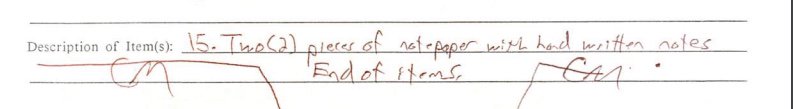 Description of Item(s): 15. Two(2) pieces of notepaper with hand written notes
End of items.
CM CM